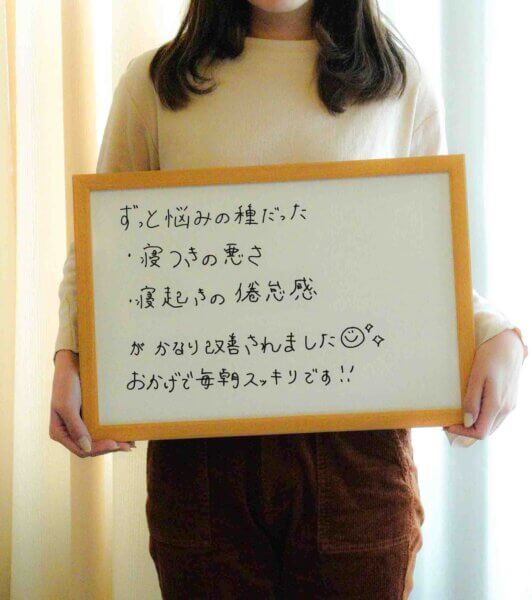 ずっと悩みの種だった
・寝つきの悪さ
・寝起きの倦怠感
が かなり改善されました
おかげで毎朝スッキリです!!